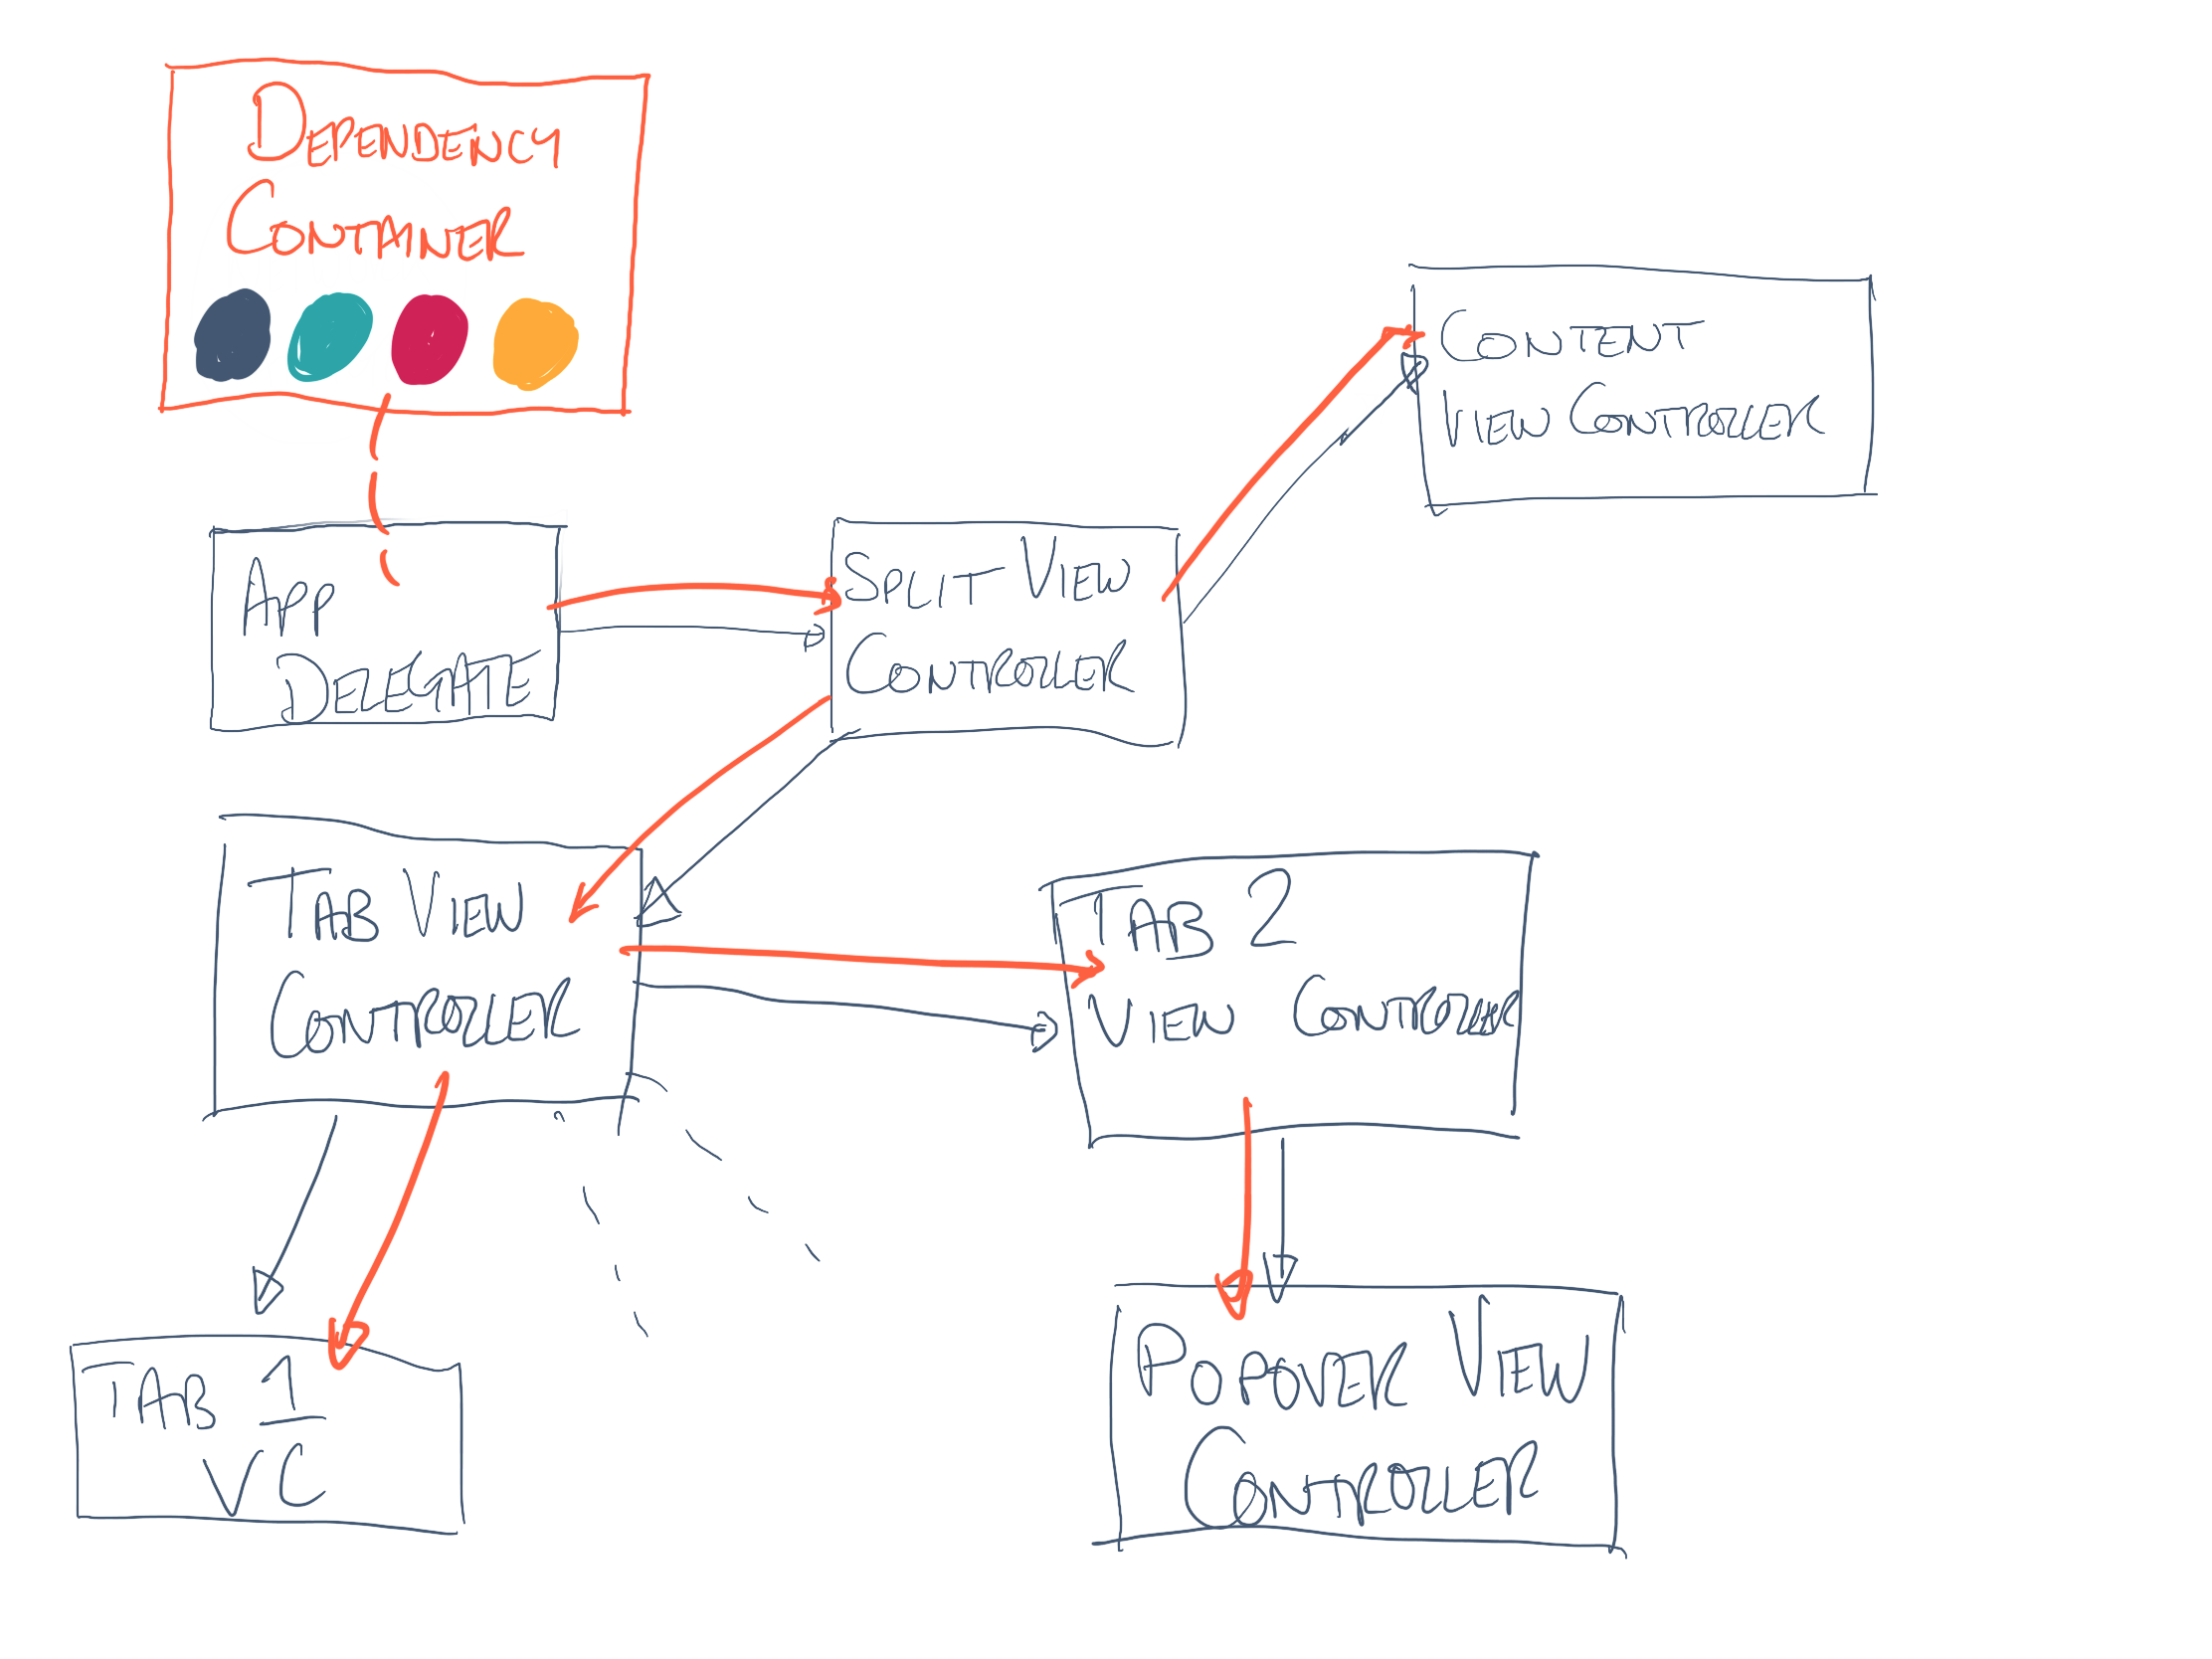 DEPENDENCY
CONTAINER
APP
DELEGATE
SPLIT VIEW
CONTROLLER
CONTENT
VIEW CONTROLLER
TAB VIEW
CONTROLLER
TAB 2
VIEW CONTROLLER
TAB 1
VC
POPOVER VIEW
CONTROLLER